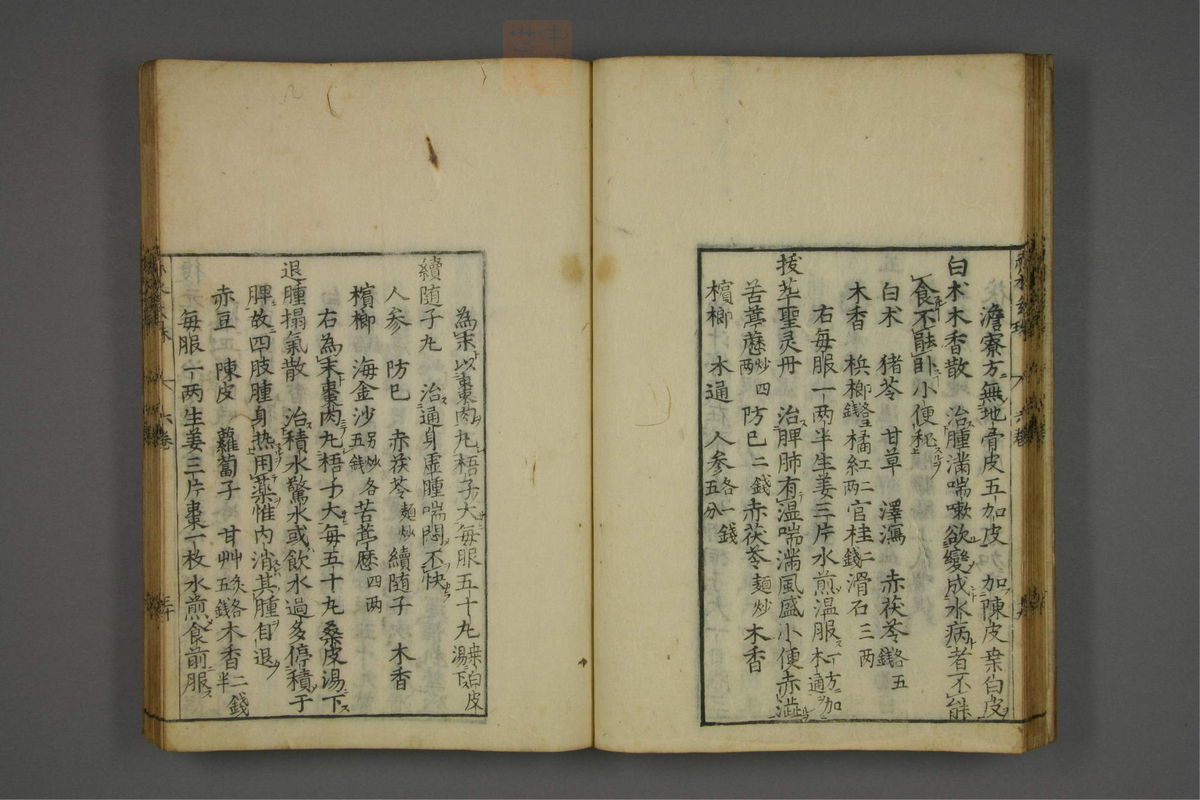 澹寮方無地骨皮五加皮加陳皮桒白皮
白朮木香散 治腫滿喘嗽欲變成水病者不能
食不能卧小便秘
白朮 猪苓 甘草 澤瀉 赤茯苓各五錢
木香 梹榔各錢 橘紅二兩 官桂二錢 滑石三两
右每服一两半生姜三片水煎温服一方加木通
拔萃聖灵丹 治脾肺有温喘滿風盛小便赤澁
苦葶藶炒四两 防巳二錢 赤茯苓麺炒 木香
檳榔 木通 人参各一錢五分
為末以棗肉丸梧子大每服五十丸桒白皮湯下
續随子丸 治通身虛腫喘悶不快
人参 防巳 赤茯苓麺炒 續随子 木香
檳榔 海金沙另炒各五錢 苦葶藶四两
右為末棗肉丸梧子大每五十丸桑皮湯下
退腫搨氣散 治積水驚水或飲水過多停積于
脾故四肢腫身热用薬惟内消其腫自退
赤豆 陳皮 蘿蔔子 甘艸炙各五錢 木香二錢半
每服一两生姜三片棗一枚水煎食前服